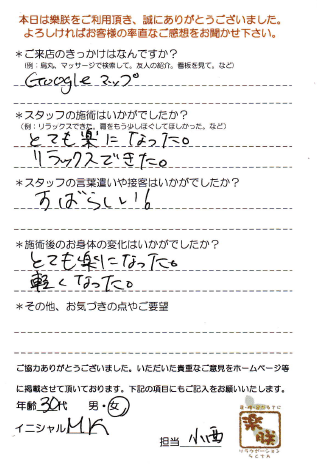 本日は樂咲をご利用頂き、誠にありがとうございました。
よろしければお客様の率直なご感想をお聞かせ下さい。
*ご来店のきっかけはなんですか?
(例:烏丸、マッサージで検索して。友人の紹介。看板を見て。など)
Googleマップ
*スタッフの施術はいかがでしたか?
(例:リラックスできた。肩をもう少しほぐしてほしかった。など)
とても楽になった。
リラックスできた。
*スタッフの言葉遣いや接客はいかがでしたか?
すばらしい!
*施術後のお身体の変化はいかがでしたか?
とても楽になった。
軽くなった。
*その他、お気づきの点やご要望
ご協力ありがとうございました。いただいた貴重なご意見をホームページ等
に掲載させて頂いております。下記の項目にもご記入をお願いいたします。
年齢 30代 男・女
イニシャル MK
担当 小西
樂咲
リラクゼーション